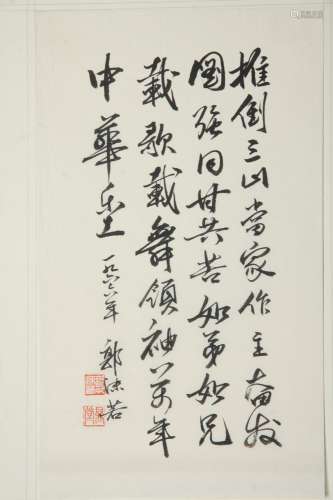 推倒三山當家作主奋发
图強同甘共苦如弟如兄
載歌載舞領袖萬年
中華樂土
一九六六年 郭沫若